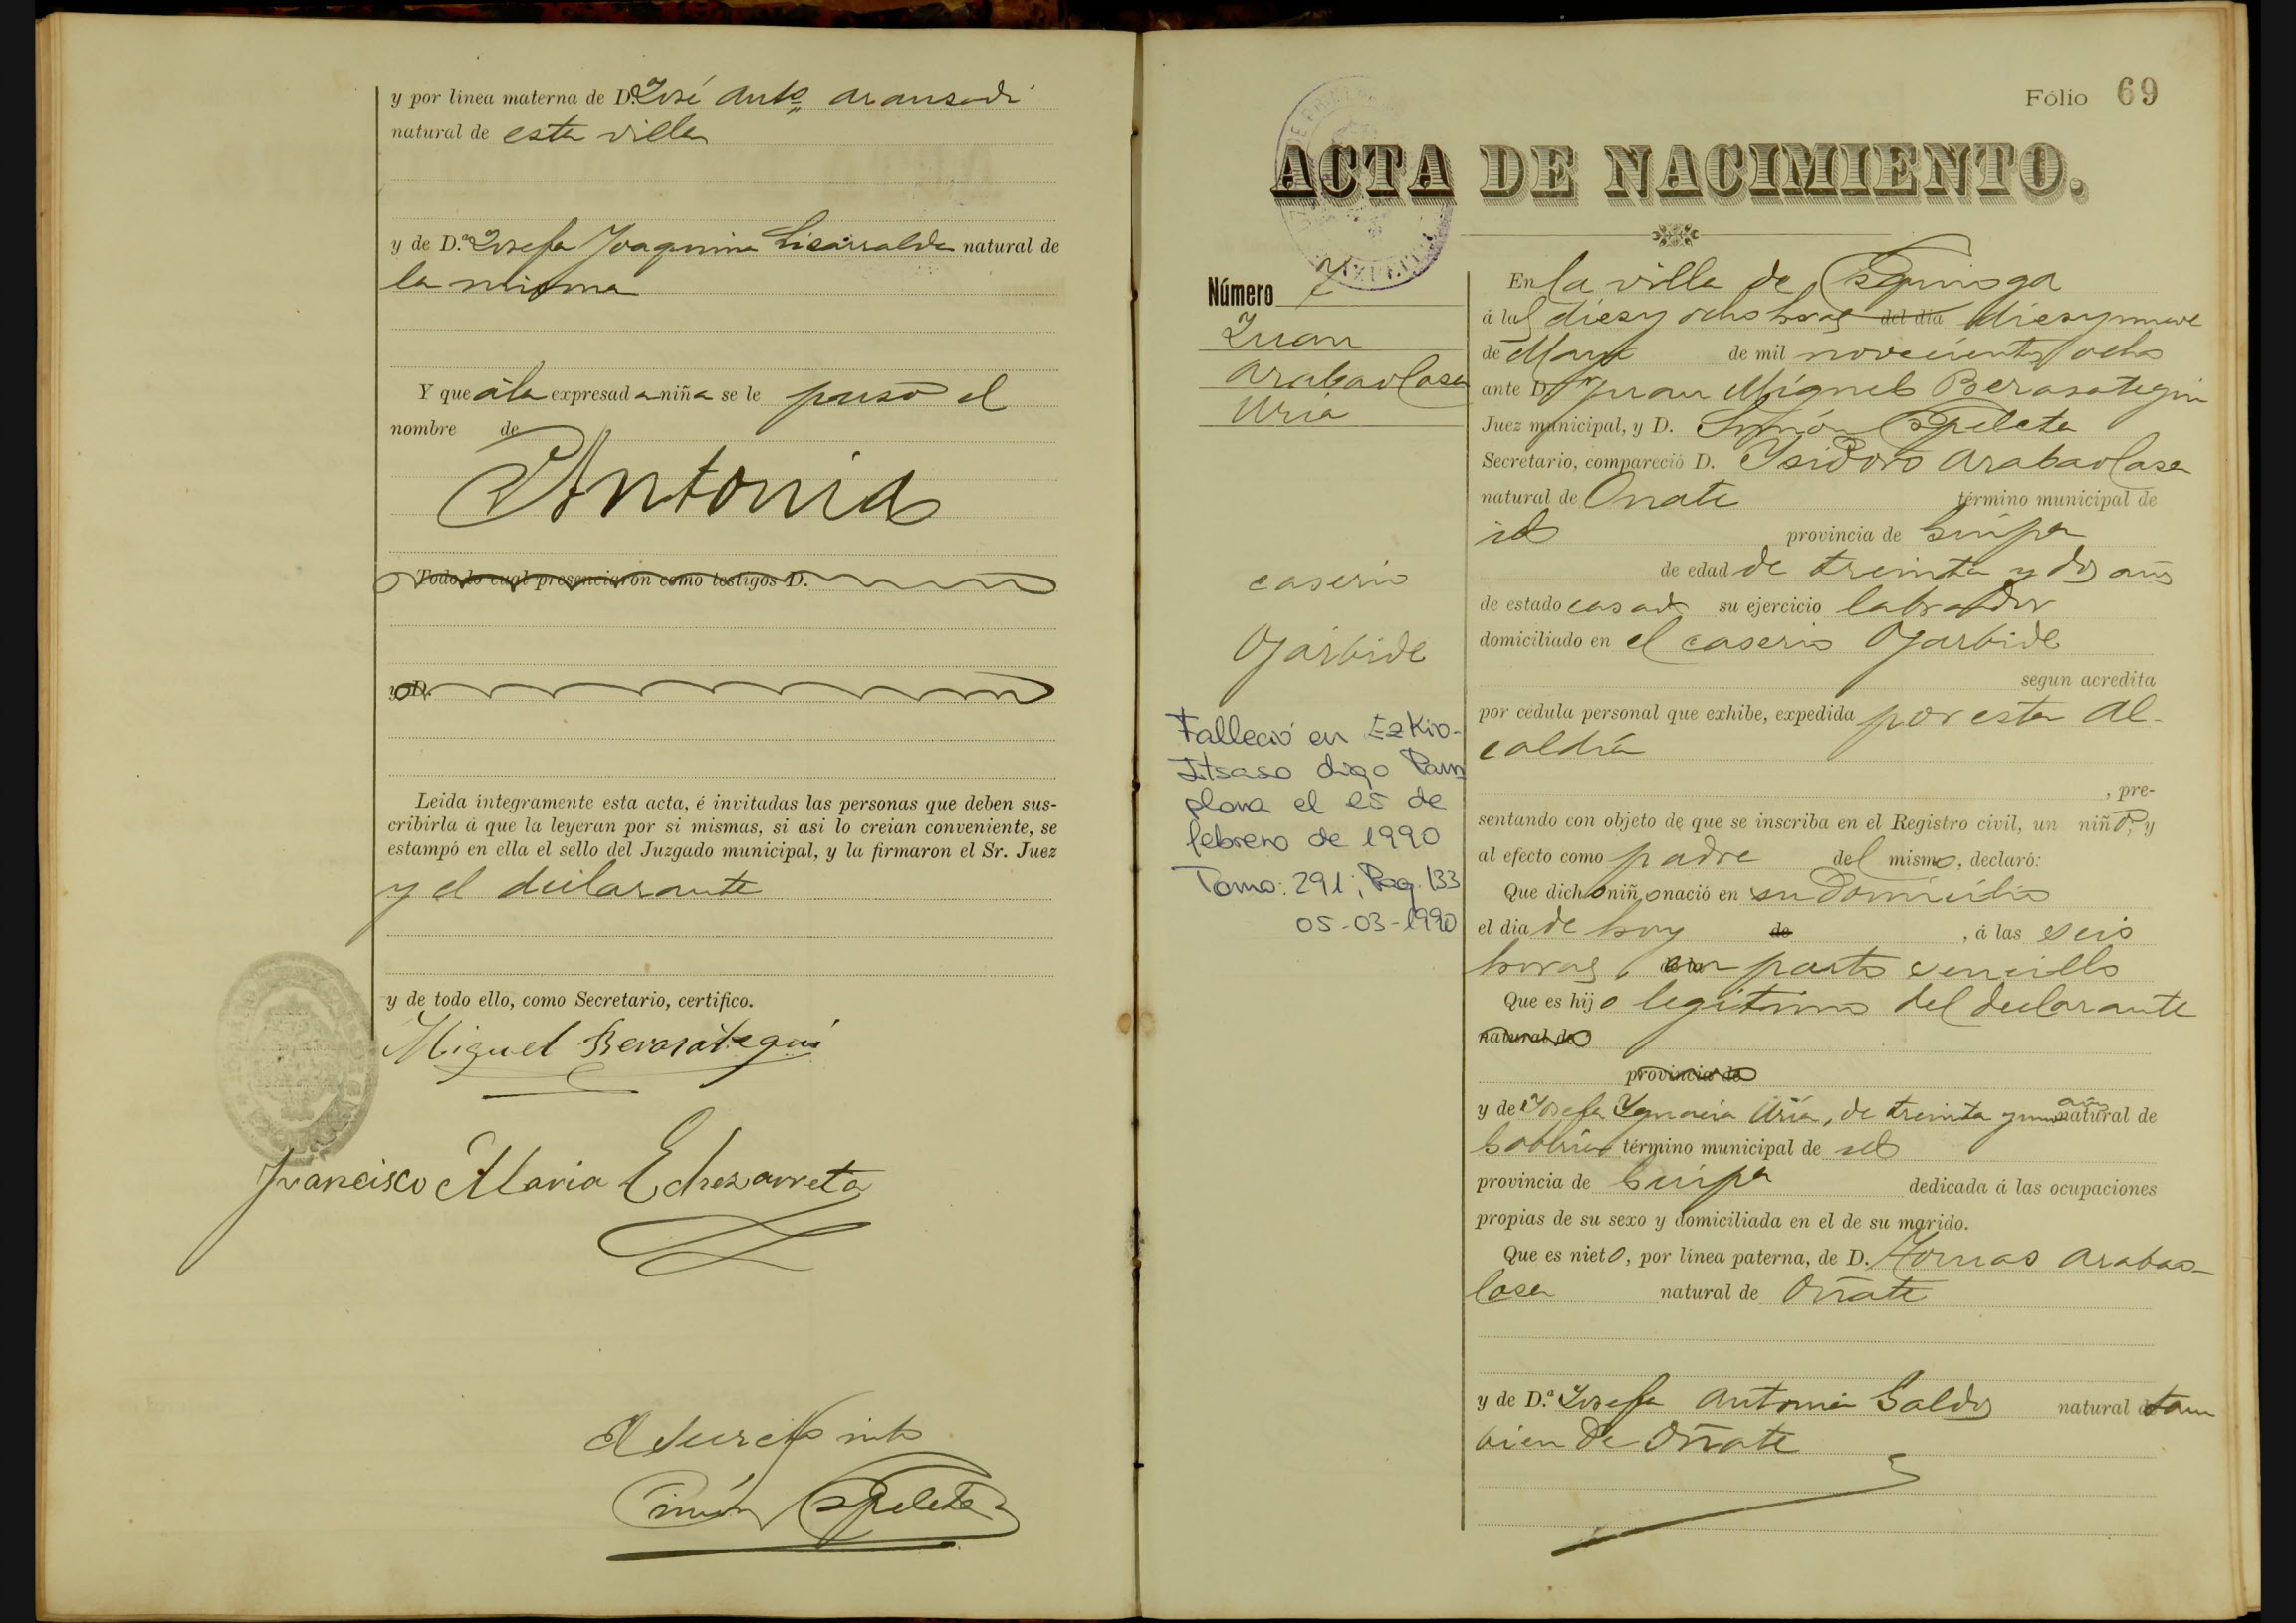 y por línea materna de D. José Anto. Aranzadi
natural de esta villa
y de D.ª Josefa Joaquina Lisarralde natural de
la misma
Y que á la expresad a niñ a se le puso el
nombre de
Antonia
Todo lo cual presenciaron como testigos D.
y D.
Leida íntegramente esta acta, é invitadas las personas que deben sus-
cribirla á que la leyeran por si mismas, si asi lo creian conveniente, se
estampó en ella el sello del Juzgado municipal, y la firmaron el Sr. Juez
y el declarante
y de todo ello, como Secretario, certifico.
Miguel Berasategui
Francisco Maria Echezarreta
El Secretario
Simón Espeleta
Fólio 69
ACTA DE NACIMIENTO.
Número 7
Juan
Arabaolasa
Uria
caserio
Ojarbide
Falleció en Ezkio-
Itsaso digo Pam
plona el 25 de
febrero de 1990
Tomo: 291; Pag. 133
05-03-1990
En la villa de Ezquioga
á las diez y ocho horas del dia diez y nueve
de Mayo de mil novecientos ocho
ante D. Juan Miguel Berasategui
Juez municipal, y D. Simón Espeleta
Secretario, compareció D. Ysidoro Arabaolasa
natural de Oñate término municipal de
id provincia de Guipa
de edad de treinta y dos años
de estado casado su ejercicio labrador
domiciliado en el caserio Ojarbide
segun acredita
por cédula personal que exhibe, expedida por esta Al-
caldía
, pre-
sentando con objeto de que se inscriba en el Registro civil, un niño, y
al efecto como padre del mismo, declaró:
Que dicho niño nació en su domicilio
el dia de hoy de , á las seis
horas, en parto sencillo
Que es hijo legitimo del declarante
natural de
provincia de
y de Josefa Ygnacia Uria, de treinta y un años natural de
Gabiria término municipal de id
provincia de Guipa dedicada á las ocupaciones
propias de su sexo y domiciliada en el de su marido.
Que es nieto, por línea paterna, de D. Tomas Arabao-
lasa natural de Oñate
y de D.ª Josefa Antonia Galdos natural de tam
bien de Oñate